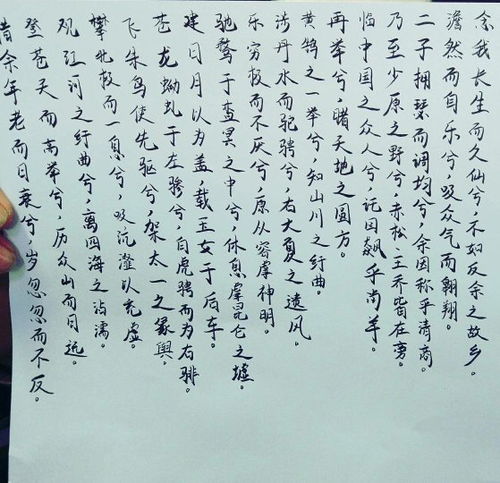 惜余年老而日衰兮，岁忽忽而不反。
登苍天而高举兮，历众山而日远。
观江河之纡曲兮，离四海之沾濡。
攀北极而一息兮，吸沆瀣以充虚。
飞朱鸟使先驱兮，驾太一之象舆。
苍龙蚴虬于左骖兮，白虎骋而为右騑。
建日月以为盖，载玉女于后车。
驰骛于杳冥之中兮，休息虖昆仑之墟。
乐穷极而不厌兮，愿从容虖神明。
涉丹水而驼骋兮，右大夏之遗风。
黄鹄之一举兮，知山川之纡曲。
再举兮，睹天地之圜方。
临中国之众人兮，讬回飙乎尚羊。
乃至少原之野兮，赤松、王乔皆在旁。
二子拥瑟而调均兮，余因称乎清商。
澹然而自乐兮，吸众气而翱翔。
念我长生而久仙兮，不如反余之故乡。